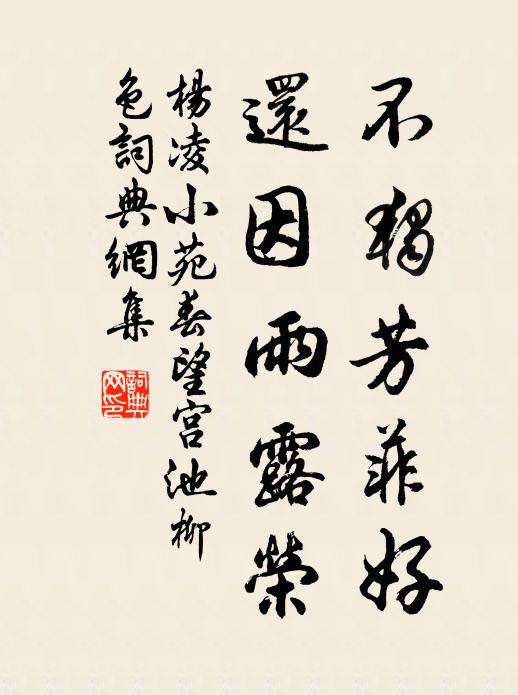 不獨芳菲好
還因雨露榮
楊凌小苑春望宮池柳
色詞典網集
詞典
网印